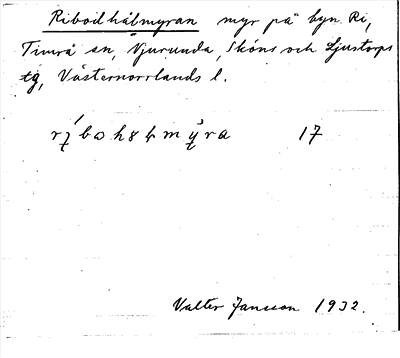 Ribodhålmyran myr på byn Ri,
Timrå sn, Njurunda, Sköns och Ljustorps
tg, Västernorrlands l.
17
Valter Jansson 1932.